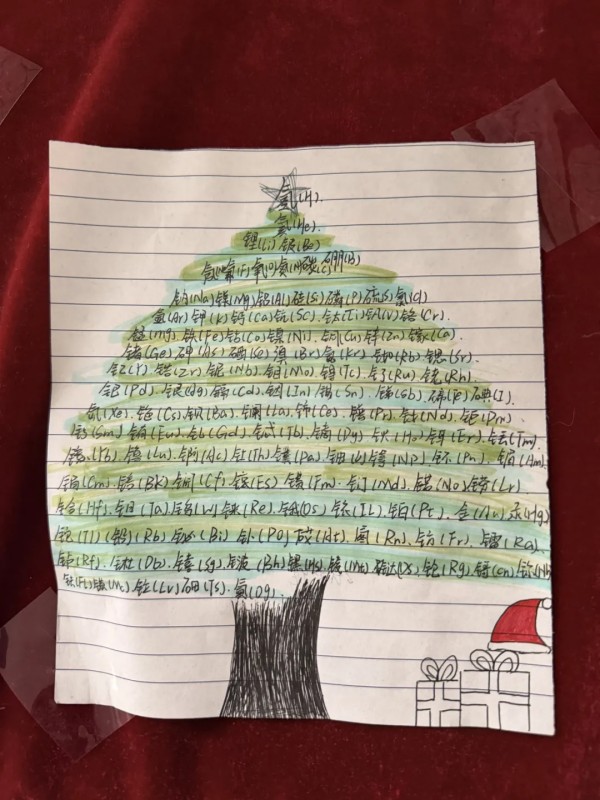 氢(H).
氦(He).
锂(Li) 铍(Be)
氖 氟(F) 氧(O) 氮(N) 碳(C) 硼(B)
钠(Na) 镁(Mg) 铝(Al) 硅(Si) 磷(P) 硫(S) 氯(Cl)
氩(Ar) 钾(K) 钙(Ca) 钪(Sc). 钛(Ti) 钒(V) 铬(Cr).
锰(Mg). 铁(Fe) 钴(Co) 镍(Ni). 铜(Cu) 锌(Zn) 镓(Ca).
锗(Ge) 砷(As) 硒(Se) 溴(Br) 氪(Kr) 铷(Rb) 锶(Sr).
钇(Y). 锆(Zr) 铌(Nb) 钼(Mo) 锝(Tc) 钌(Ru) 铑(Rh).
钯(Pd). 银(Ag) 镉(Cd). 铟(In) 锡(Sn). 锑(Sb) 碲(Te) 碘(I).
氙(Xe). 铯(Cs) 钡(Ba) 镧(La). 铈(Ce). 镨(Pr) 钕(Nd). 钷(Pm).
钐(Sm) 铕(Eu). 钆(Gd). 铽(Tb). 镝(Dy) 钬(Ho) 铒(Er). 铥(Tm)
镱(Yb). 镥(Lu). 锕(Ac) 钍(Th) 镤(Pa) 铀(U) 镎(Np). 钚(Pu). 镅(Am)
锔(Cm) 锫(BK) 锎(Cf) 锿(Es) 镄(Fm). 钔(Md). 锘(No) 铹(Lr).
铪(Hf). 钽(Ta) 钨(W) 铼(Re). 锇(Os) 铱(IL) 铂(Pt. 金(Au) 汞(Hg)
铊(Tl) (Rb) 铋(Bi) 钋(Po) 砹(At) 氡(Rn). 钫(Fr). 镭(Ra).
(Rf). (Db). (Sg. (Bh) (Hs) (Mt) (Ds). (Rg). (Cn) (Nh)
(Fl) (Mc) (Lv) (Ts). (Og).